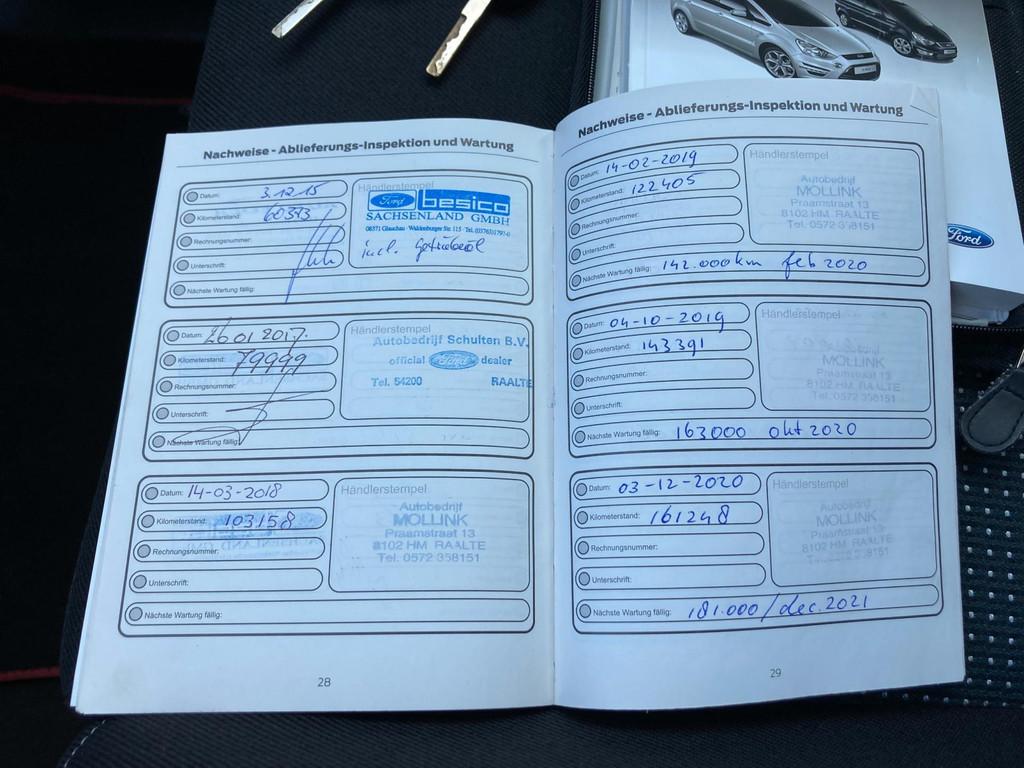 Nachweise - Ablieferungs-Inspektion und Wartung
Datum: 3.12.15
Kilometerstand: 60373
Rechnungsnummer:
Unterschrift:
Nächste Wartung fällig:
Händlerstempel
Ford besico
SACHSENLAND GMBH
08371 Glauchau · Waldenburger Str. 115 · Tel.
incl. Getriebeöl
Datum: 26 01 2017.
Kilometerstand: 79999
Rechnungsnummer:
Unterschrift:
Nächste Wartung fällig:
Händlerstempel
Autobedrijf Schulten B.V.
official Ford dealer
Tel. 54200 RAALTE
Datum: 14-03-2018
Kilometerstand: 103158
Rechnungsnummer:
Unterschrift:
Nächste Wartung fällig:
Händlerstempel
Autobedrijf
MOLLINK
Praamstraat 13
8102 HM RAALTE
Tel. 0572 358151
28
Nachweise - Ablieferungs-Inspektion und Wartung
Datum: 14-02-2019
Kilometerstand: 122405
Rechnungsnummer:
Unterschrift:
Nächste Wartung fällig: 142.000km feb 2020
Händlerstempel
Autobedrijf
MOLLINK
Praamstraat 13
8102 HM RAALTE
Tel. 0572 358151
Datum: 04-10-2019
Kilometerstand: 143391
Rechnungsnummer:
Unterschrift:
Nächste Wartung fällig: 163000 okt 2020
Händlerstempel
MOLLINK
Praamstraat 13
8102 HM RAALTE
Tel. 0572 358151
Datum: 03-12-2020
Kilometerstand: 161248
Rechnungsnummer:
Unterschrift:
Nächste Wartung fällig: 181.000/dec.2021
Händlerstempel
Autobedrijf
MOLLINK
Praamstraat 13
8102 HM RAALTE
Tel. 0572 358151
29
Ford